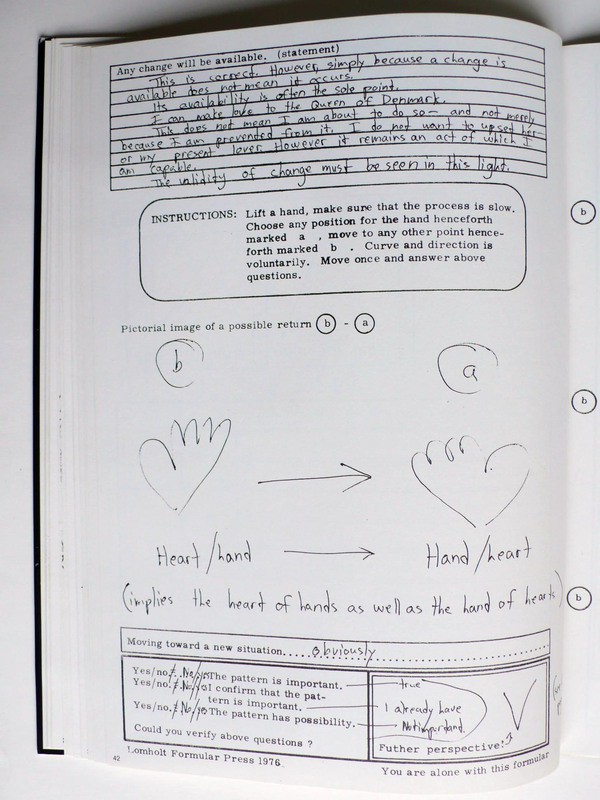 Any change will be available. (statement)
This is correct. However, simply because a change is
available does not mean it occurs.
Its availability is often the sole point.
I can make love to the Queen of Denmark.
This does not mean I am about to do so — and not merely
because I am prevented from it. I do not want to upset her
or my present lover. However it remains an act of which I
am capable.
The validity of change must be seen in this light.
INSTRUCTIONS: Lift a hand, make sure that the process is slow.
Choose any position for the hand henceforth
marked a , move to any other point hence-
forth marked b . Curve and direction is
voluntarily. Move once and answer above
questions.
Pictorial image of a possible return b - a
b
a
Heart/hand
Hand/heart
(implies the heart of hands as well as the hand of hearts)
Moving toward a new situation.....obviously
Yes/no. No/yes The pattern is important.
true
Yes/no. No/yes I confirm that the pat-
tern is important.
I already have
Yes/no. No/yes The pattern has possibility.
Not important.
Could you verify above questions ?
Futher perspective:
42
Lomholt Formular Press 1976
You are alone with this formular
b
b
b